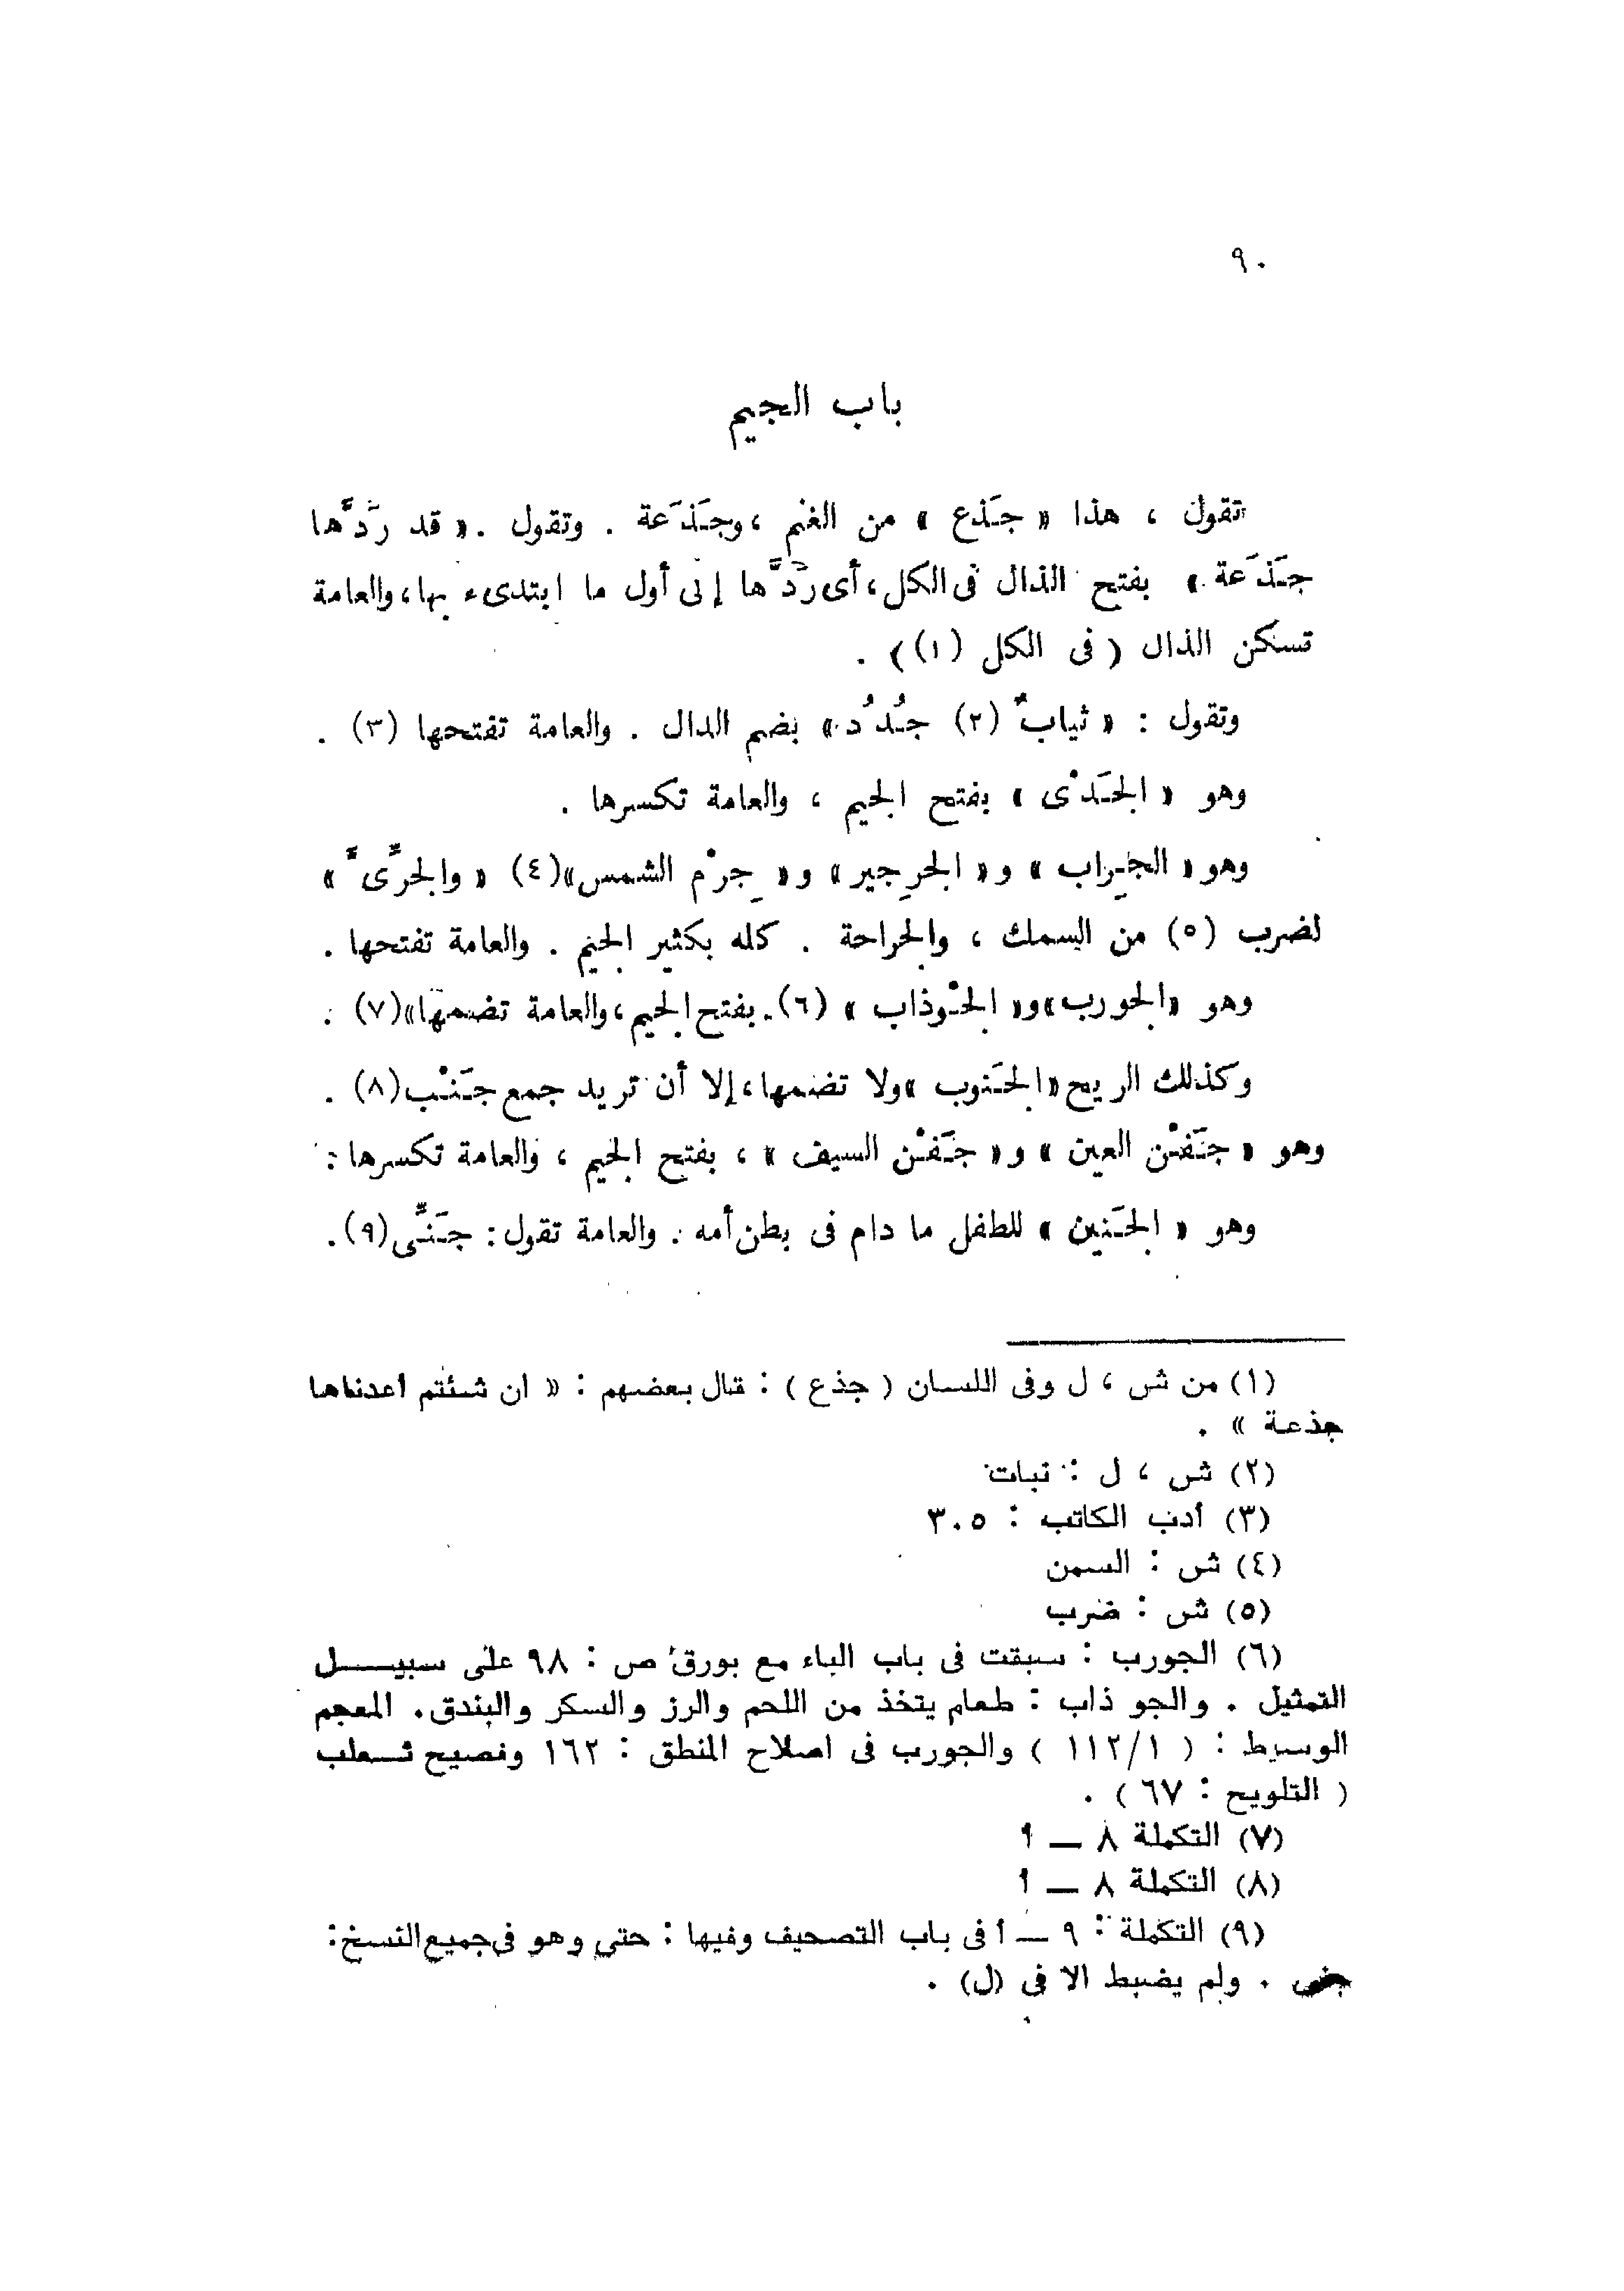 ٩٠
باب الجيم
تقول ، هذا « جَذع » من الغنم ، وجَذَعة . وتقول . « قد رَدَّها
جَذَعة » بفتح الذال فى الكل ، أى رَدَّها إلى أول ما ابتدىء بها ، والعامة
تسكن الذال ( فى الكل (١) ) .
وتقول : « ثيابٌ (٢) جُدُد » بضم الدال . والعامة تفتحها (٣) .
وهو « الجَدْى » بفتح الجيم ، والعامة تكسرها .
وهو « الجِراب » و « الجرجير » و « جِرْم الشمس » (٤) « والجرِّىَّ »
لضرب (٥) من السمك ، والجراحة . كله بكثير الجيم . والعامة تفتحها .
وهو « الجورب » و « الجْوذاب » (٦) . بفتح الجيم ، والعامة تضمها » (٧) .
وكذلك الريح « الجَنوب » ولا تضمها ، إلا أن تريد جمع جَنْب (٨) .
وهو « جَفْن العين » و « جَفْن السيف » ، بفتح الجيم ، والعامة تكسرها :
وهو « الجَنين » للطفل ما دام فى بطن أمه . والعامة تقول : جَنِّى (٩) .
(١) من ش ، ل وفى اللسان ( جذع ) : قال بعضهم : « ان شئتم اعدناها
جذعة » .
(٢) ش ، ل : نبات
(٣) أدب الكاتب : ٣٠٥
(٤) ش : السمن
(٥) ش : ضرب
(٦) الجورب : سبقت فى باب الباء مع بورق ص : ٩٨ على سبيـــل
التمثيل . والجو ذاب : طعام يتخذ من اللحم والرز والسكر والبندق . المعجم
الوسيط : ( ١١٢/١ ) والجورب فى اصلاح المنطق : ١٦٢ وفصيح ثــعلب
( التلويح : ٦٧ ) .
(٧) التكملة ٨ — أ
(٨) التكملة ٨ — أ
(٩) التكملة : ٩ — أ فى باب التصحيف وفيها : حتى وهو فى جميع النسخ :
. ولم يضبط الا فى (ل) .